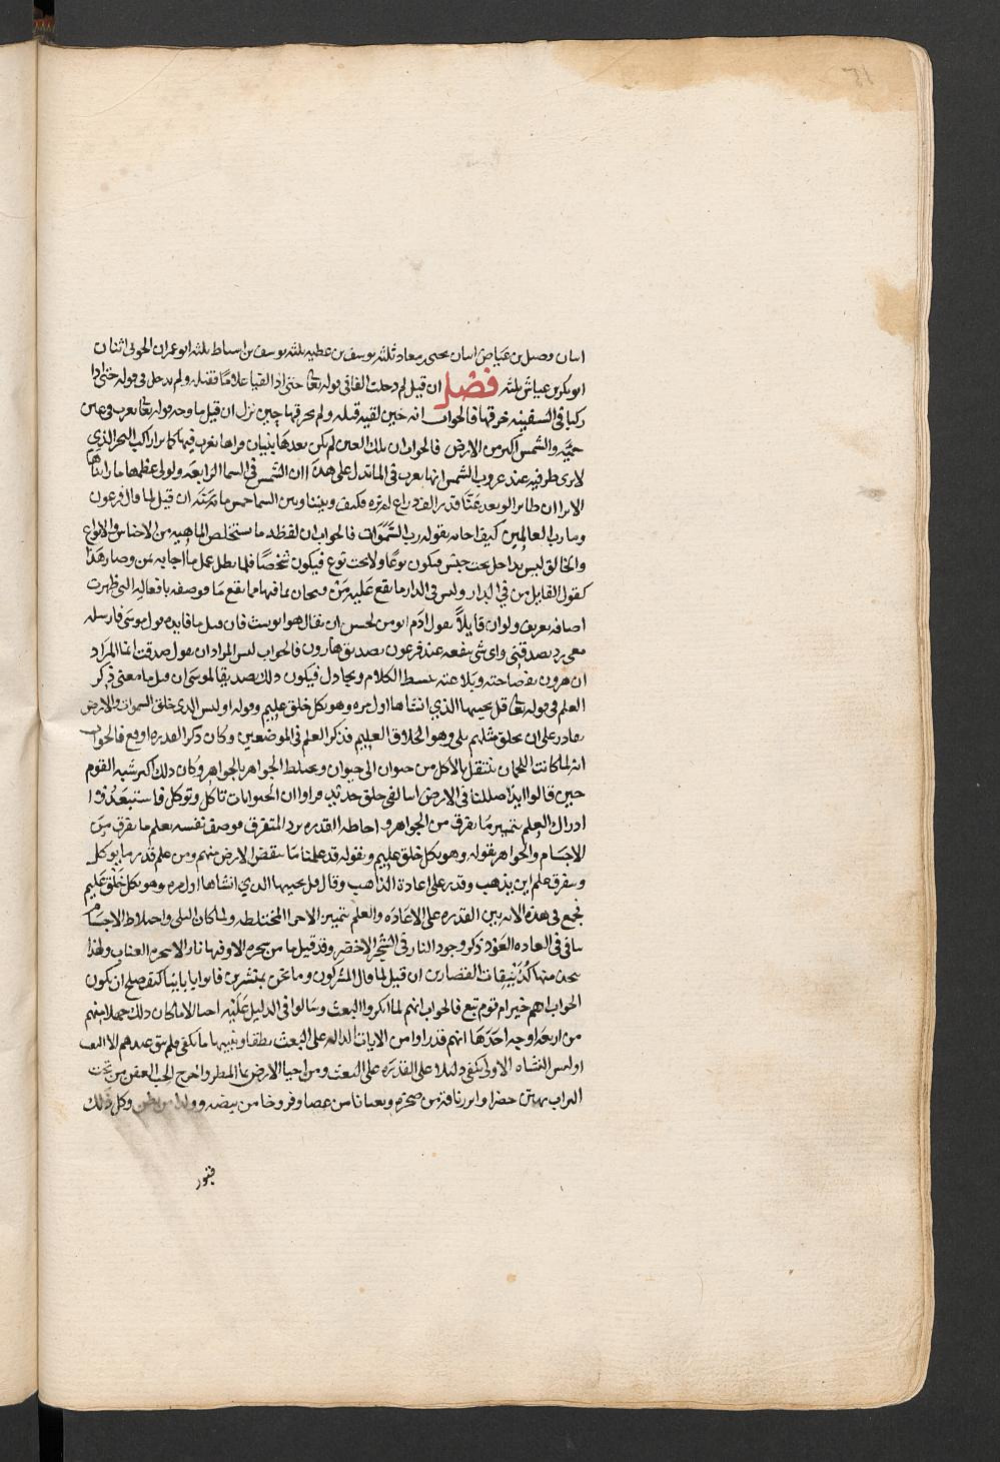 اسان وفضيل بن عياض اسان يحيى بن معاد ثلثه يوسف بن عطيه ثلثه يوسف بن اسباط ثلثه ابو عمران الجوني اثنان
ابو بكر بن عياش ثلثه فصل ان قيل لم دخلت الفا في قوله تعا حتى اذا لقيا غلامًا فقتله ولم تدخل في قوله حتى اذا
ركبا في السفينه خرقها فالجواب انه حين لقيه قتله ولم يخرقها حين نزل ان قيل ما وجه قوله تعا تغرب في عين
حميَّه والشمس اكبر من الارض فالجواب ان تلك العين لم يكن بعدها بنيان فراها تغرب فيها كما يرا راكب البحر الذي
لا يرى طرفيه عند غروب الشمس انها تغرب في الما تدل على هذا ان الشمس في السما الرابعه ولولا عظمها ما رايناها
الا ترا ان طاير لو بعد عنا قدر الف ذراع لم نره فكيف وبيننا وبين السما خمس مايه سنه ان قيل لما قال فرعون
وما رب العالمين كيف اجابه بقوله رب السَّموَات فالجواب ان لفظه ما ستخلص الماهيه من الاجناس والانواع
والخالق ليس بداخل تحت جنس فيكون نوعًا ولا تحت نوع فيكون شخصًا فلما بطل عمل ما اجابه بمن وصار هذا
كقول القايل من في الدار وليس في الدار ما يقع عَليه مَنْ فيجاب بما فيها مما يقع مَا فوصفه بافعاله التي ظهرت
اضافه تعريف ولو ان قايلاً يقول ادَم ابو من لحسن ان يقال هو ابو شيث فان قيل ما فايده قول موسى فارسله
معي ردءا يصدقني واي شي ينفعه عند فرعون تصديق هارون فالجواب ليس المراد ان يقول صدقت انما المراد
ان هرون بفصاحته وبلاغته يبسط الكلام ويجادل فيكون ذلك تصديقا لموسى ان قيل ما معنى ذكر
العلم في قوله تعا قل يحييها الذي انشاها اول مره وهو بكل خلق عليم وقوله اوليس الذي خلق السموات والارض
بقادر على ان يخلق مثلهم بلى وهو الخلاق العليم فذكر العلم في الموضعين وكان ذكر القدره اوقع فالجواب
انه لما كانت اللحمان تنتقل بالاكل من حيوان الى حيوان ويختلط الجواهر بالجواهر وكان ذلك اكبر شبه القوم
حين قالوا ايذا ضللنا في الارض اينا لفي خلق جديد فراوا ان الحيوانات تاكل وتوكل فاستبعدوا
ادراك العِلم بتمييز مَا تفرق من الجواهر واحاطه القدره برد المتفرق فوصف نفسه بعلم ما تفرق من
الاجسَام والجواهر بقوله وهو بكل خلق عليم وبقوله قد علمنا مَا تنقص الارض منهم ومن علم قدر ما يوكل
وتفرق علم اين يذهب وقدر على اعادة الذاهب وقال قل يحييها الذي انشاها اول مره وهو بكل خَلق عَليم
فجمع في هذه الايه بين القدره على الاعَادَه والعلم بتمييز الاجزا المختلطه ولما كان البلى واختلاط الاجسام
ينافي في العاده العَود ذكر وجود النار في الشجر الاخضر وقد قيل ما من شجره الا وفيها نار الا شجره العناب ولهذا
يتخذ منها كُذَيْنِقات القصارين ان قيل لما قال المشركون وما نحن بمنشرين فاتوا بابايِنا كيف صلح ان يكون
الجواب اهم خير ام قوم تبع فالجواب انهم لما انكروا البعث وسَالوا في الدليل عَليْه احيا الابا كان ذلك جهلا منهم
من اربعه اوجه احَدَهَا انهم قد راوا من الايات الداله على البعث نطقا وتنبيها ما يكفي فلم يبق عندهم الا التعنت
اوليس النشاه الاولى يكفي دليلا على القدرَه على البعث ومن احيا الارض بالمطر واخرج الحب العفن من تحت
التراب يهتز خضرا وابرز ناقه من صخره وثعبانا من عصا وفروخا من بيضه وولدا من بطن وكل ذلك
فتور